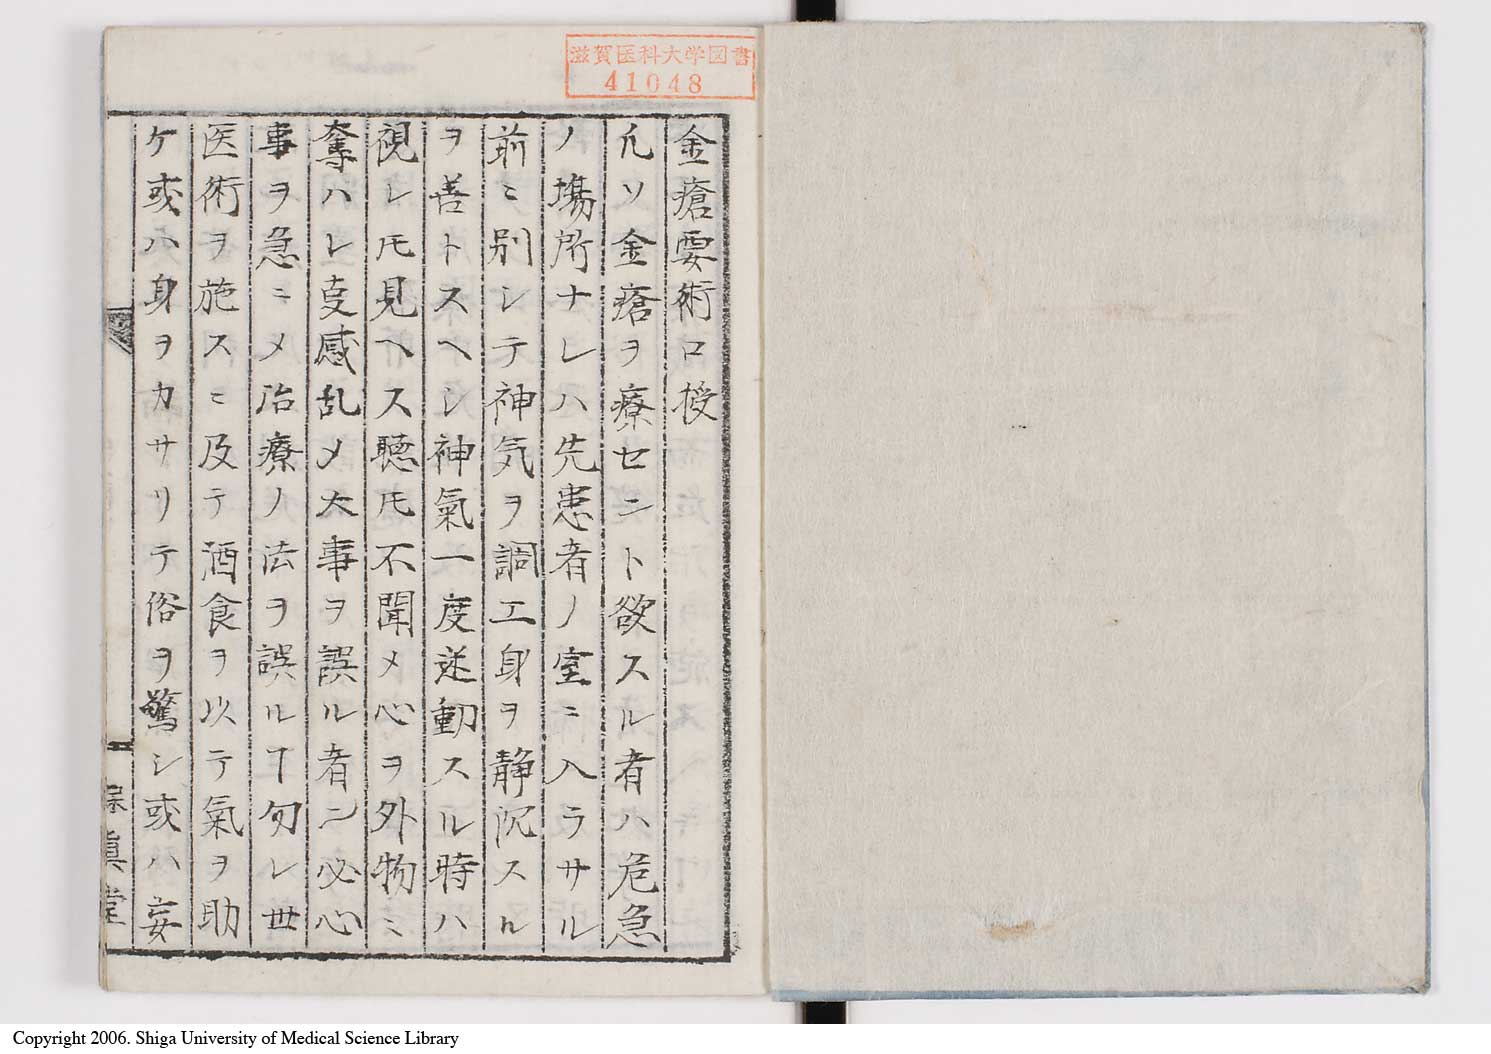 滋賀医科大学図書
41048
金瘡要術口授
凡ソ金瘡ヲ療セント欲スル者ハ危急
ノ場所ナレハ先患者ノ室ニ入ラサル
前ニ別シテ神気ヲ調エ身ヲ静沉スル
ヲ善トスヘシ神氣一度逆動スル時ハ
視レ𪜈見ヘス聴𪜈不聞〆心ヲ外物ニ
奪ハレ変惑乱〆大事ヲ誤ル者ニ必心
事ヲ急ニ〆治療ノ法ヲ誤ルヿ勿レ世
医術ヲ施スニ及テ酒食ヲ以テ氣ヲ助
ケ或ハ身ヲカサリテ俗ヲ驚シ或ハ妄
眞堂
Copyright 2006. Shiga University of Medical Science Library